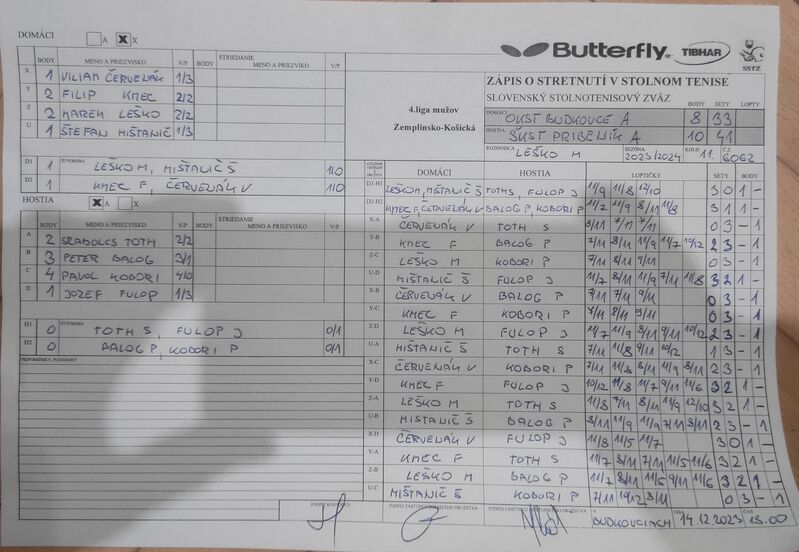 DOMÁCI A X X
Butterfly TIBHAR SSTZ
BODY MENO A PRIEZVISKO V/P BODY STRIEDANIE MENO A PRIEZVISKO V/P
X 1 VILIAM ČERVEŇÁK 1/3
Y 2 FILIP KMEC 2/2
Z 2 MAREK LEŠKO 2/2
U 1 ŠTEFAN MIŠTANIČ 1/3
4.liga mužov
Zemplínsko-Košická
ZÁPIS O STRETNUTÍ V STOLNOM TENISE
SLOVENSKÝ STOLNOTENISOVÝ ZVÄZ BODY SETY LOPTY
DOMÁCI OKST BUDKOVCE A 8 33
HOSTIA ŠKST PRIBENÍK A 10 41
ROZHODCA LEŠKO M SEZÓNA 2023/2024 KOLO 11. Č.Z. 6062
D1 1 ŠTVORHRA LEŠKO M, MIŠTANIČ Š 1/0
D2 1 KMEC F, ČERVEŇÁK V 1/0
HOSTIA A X X
BODY MENO A PRIEZVISKO V/P BODY STRIEDANIE MENO A PRIEZVISKO V/P
A 2 SZABOLCS TOTH 2/2
B 3 PETER BALOG 3/1
C 4 PAVOL KOBORI 4/0
D 1 JOZEF FULOP 1/3
H1 0 ŠTVORHRA TOTH S, FULOP J 0/1
H2 0 BALOG P, KOBORI P 0/1
PRIPOMIENKY, POZNÁMKY
DOMÁCI HOSTIA LOPTIČKY SETY BODY
D1-H1 LEŠKO M, MIŠTANIČ Š TOTH S, FULOP J 11/9 11/8 12/10 3 0 1 -
D2-H2 KMEC F, ČERVEŇÁK V BALOG P, KOBORI P 11/7 11/9 8/11 11/8 3 1 1 -
X-A ČERVEŇÁK V TOTH S 3/11 7/11 7/11 0 3 - 1
Y-B KMEC F BALOG P 7/11 8/11 11/9 11/7 10/12 2 3 - 1
Z-C LEŠKO M KOBORI P 7/11 8/11 9/11 0 3 - 1
U-D MIŠTANIČ Š FULOP J 11/7 8/11 11/9 7/11 11/8 3 2 1 -
X-B ČERVEŇÁK V BALOG P 9/11 7/11 9/11 0 3 - 1
Y-C KMEC F KOBORI P 7/11 8/11 3/11 0 3 - 1
Z-D LEŠKO M FULOP J 11/7 11/9 3/11 9/11 10/12 2 3 - 1
U-A MIŠTANIČ Š TOTH S 7/11 11/8 9/11 10/12 1 3 - 1
X-C ČERVEŇÁK V KOBORI P 7/11 11/8 8/11 11/9 8/11 2 3 - 1
Y-D KMEC F FULOP J 10/12 11/8 11/7 9/11 11/6 3 2 1 -
Z-A LEŠKO M TOTH S 11/8 7/11 8/11 11/9 12/10 3 2 1 -
U-B MISTANIČ Š BALOG P 8/11 11/9 11/9 7/11 3/11 2 3 - 1
X-D ČERVEŇÁK V FULOP J 11/8 11/5 11/7 3 0 1 -
Y-A KMEC F TOTH S 11/7 8/11 7/11 11/5 11/6 3 2 1 -
Z-B LEŠKO M BALOG P 11/7 8/11 11/5 9/11 11/6 3 2 1 -
U-C MIŠTANIČ Š KOBORI P 7/11 10/12 3/11 0 3 - 1
PODPIS ROZHODCU PODPIS ZÁSTUPCU DOMÁCEHO DRUŽSTVA PODPIS ZÁSTUPCU HOSŤUJÚCEHO DRUŽSTVA
V BUDKOVCIACH DŇA 14.12.2023 ČAS 18.00